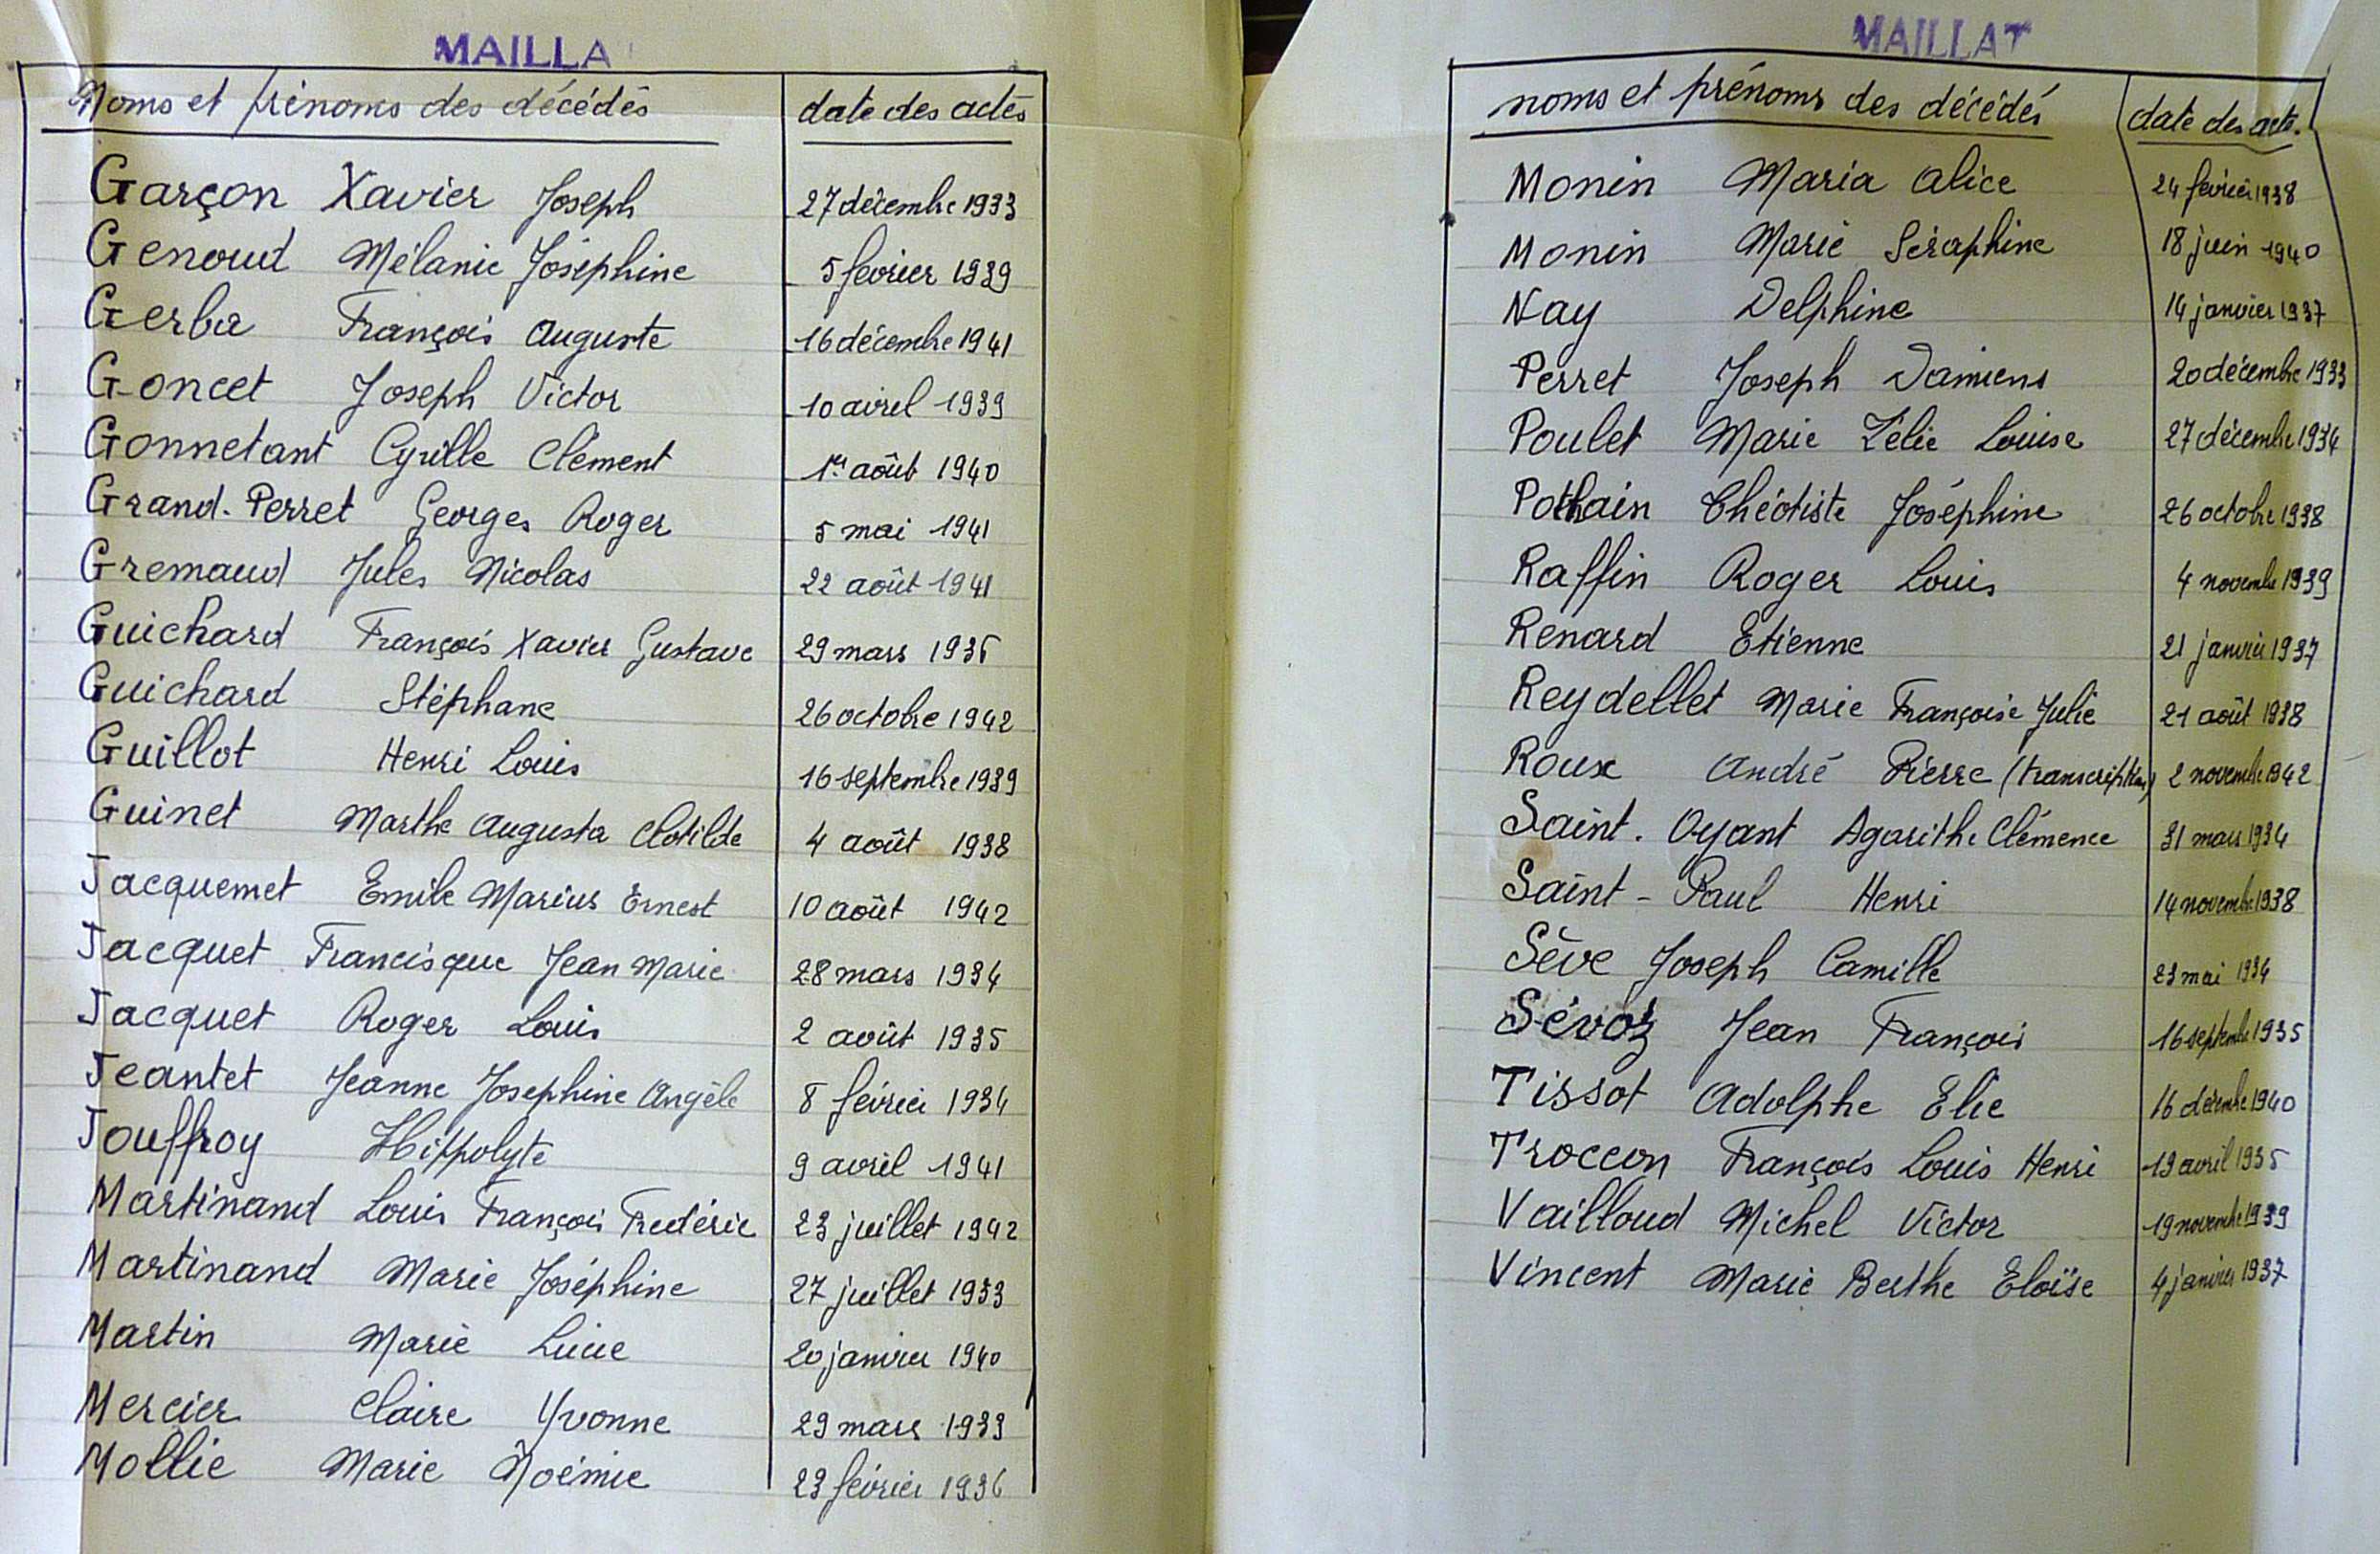 MAILLA
Noms et prénoms des décédés date des actes
Garçon Xavier Joseph 27 décembre 1933
Genoud Mélanie Joséphine 5 février 1939
Gerba François Auguste 16 décembre 1941
Goncet Joseph Victor 10 avril 1939
Gonnetant Cyrille Clément 1er août 1940
Grand-Perret Georges Roger 5 mai 1941
Gremaud Jules Nicolas 22 août 1941
Guichard François Xavier Gustave 29 mars 1936
Guichard Stéphane 26 octobre 1942
Guillot Henri Louis 16 septembre 1939
Guinet Marthe Augusta Clotilde 4 août 1938
Jacquemet Emile Marius Ernest 10 août 1942
Jacquet Francisque Jean Marie 28 mars 1934
Jacquet Roger Louis 2 août 1935
Jeantet Jeanne Josephine Angèle 8 février 1934
Jouffroy Hippolyte 9 avril 1941
Martinand Louis François Fredéric 23 juillet 1942
Martinand Marie Joséphine 27 juillet 1933
Martin Marie Lucie 20 janvier 1940
Mercier Claire Yvonne 29 mars 1933
Mollie Marie Noémie 23 février 1936
MAILLAT
noms et prénoms des décédés date des acts.
Monin Maria Alice 24 février 1938
Monin Marie Séraphine 18 juin 1940
Nay Delphine 14 janvier 1937
Perret Joseph Damiens 20 décembre 1933
Poulet Marie Zélie Louise 27 décembre 1934
Pothain Théotiste Joséphine 26 octobre 1938
Raffin Roger Louis 4 novembre 1939
Renard Etienne 21 janvier 1937
Reydellet Marie Françoise Julie 21 août 1938
Roux André Pierre (transcription) 2 novembre 1942
Saint-Oyant Agarithe Clémence 31 mars 1934
Saint-Paul Henri 14 novembre 1938
Sève Joseph Camille 23 mai 1934
Sévoz Jean François 16 septembre 1935
Tissot Adolphe Elie 16 décembre 1940
Troccon François Louis Henri 19 avril 1935
Vailloud Michel Victor 19 novembre 1939
Vincent Marie Berthe Eloïse 4 janvier 1937